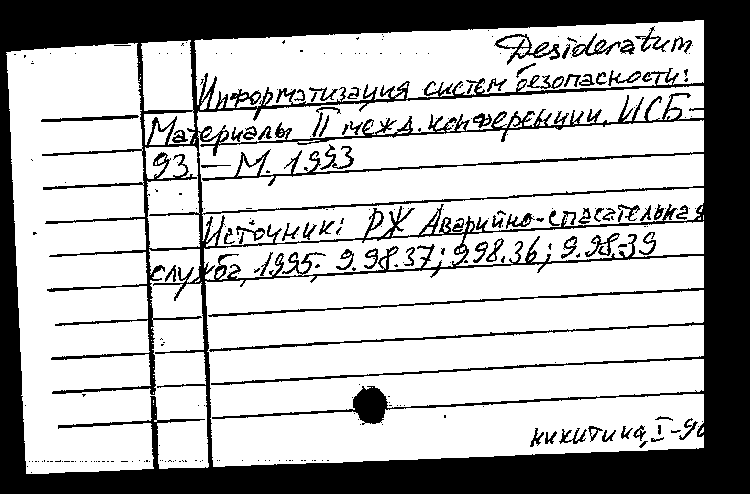 Desideratum
Информатизация систем безопасности:
Материалы II межд. конференции, ИСБ-
93. – М., 1993
Источник: РЖ Аварийно-спасательная
служба, 1995; 9.98.37; 9.98.36; 9.98.39
никитина, I-96